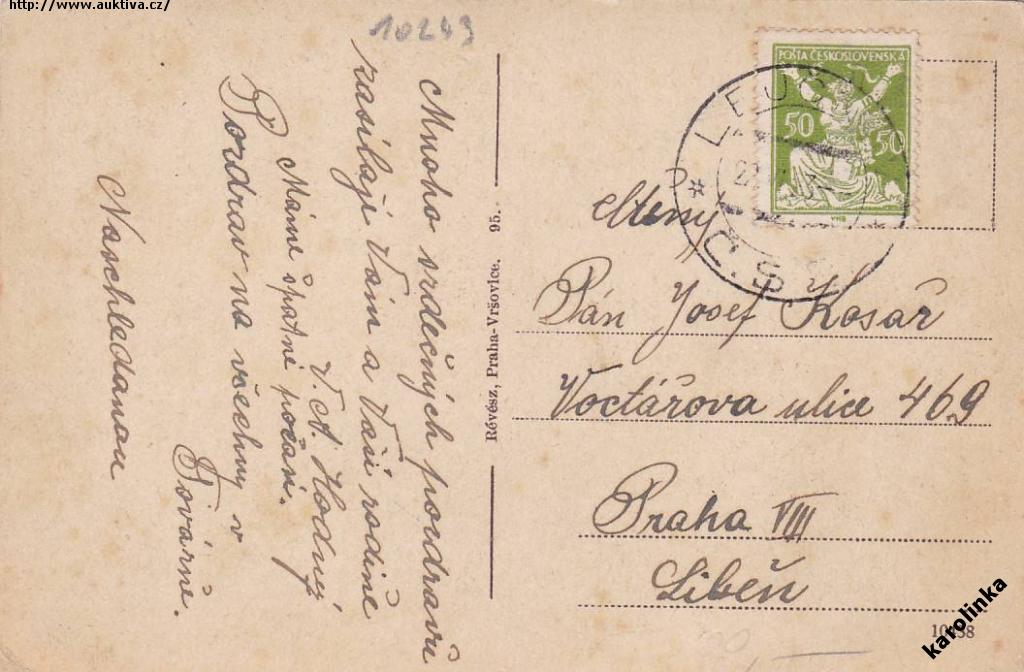 http://www.auktiva.cz/
10249
Mnoho srdečných pozdravů
zasílaje Vám a Vaší rodině
V. A. Hodný
Máme špatné počasí.
Pozdrav na všechny v
Továrně.
Naschledanou
Révész, Praha-Vršovice. 95.
POŠTA ČESKOSLOVENSKÁ
50 50
Č.S.
Ctěný
Pán Josef Kosař
Voctářova ulice 469
Praha VIII
Libeň
karolinka